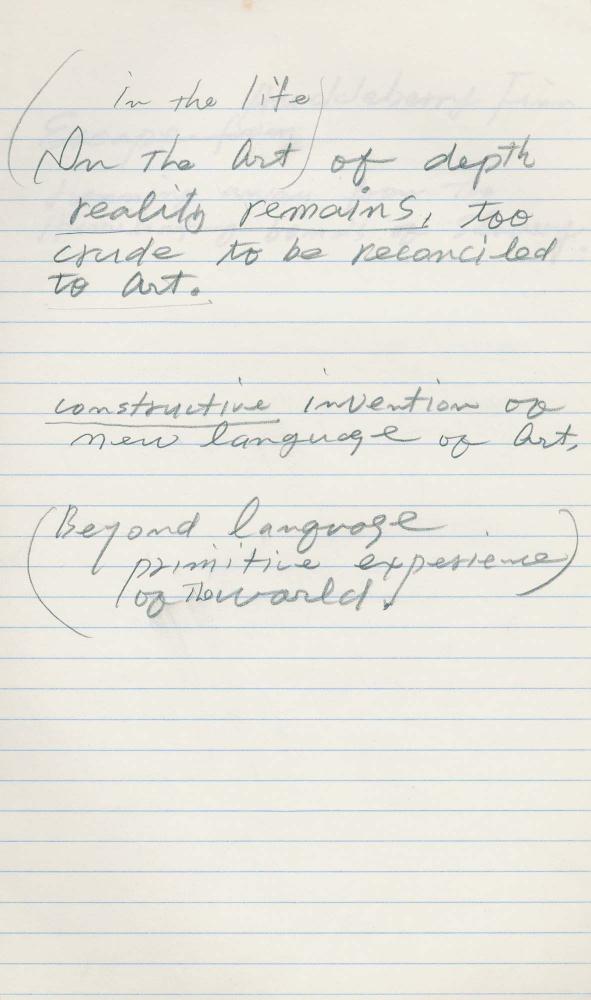 (in the life)
(In The Art) of depth
reality remains, too
crude to be reconciled
to Art.
constructive invention of
new language of Art,
(Beyond language
primitive experience)
of The world.